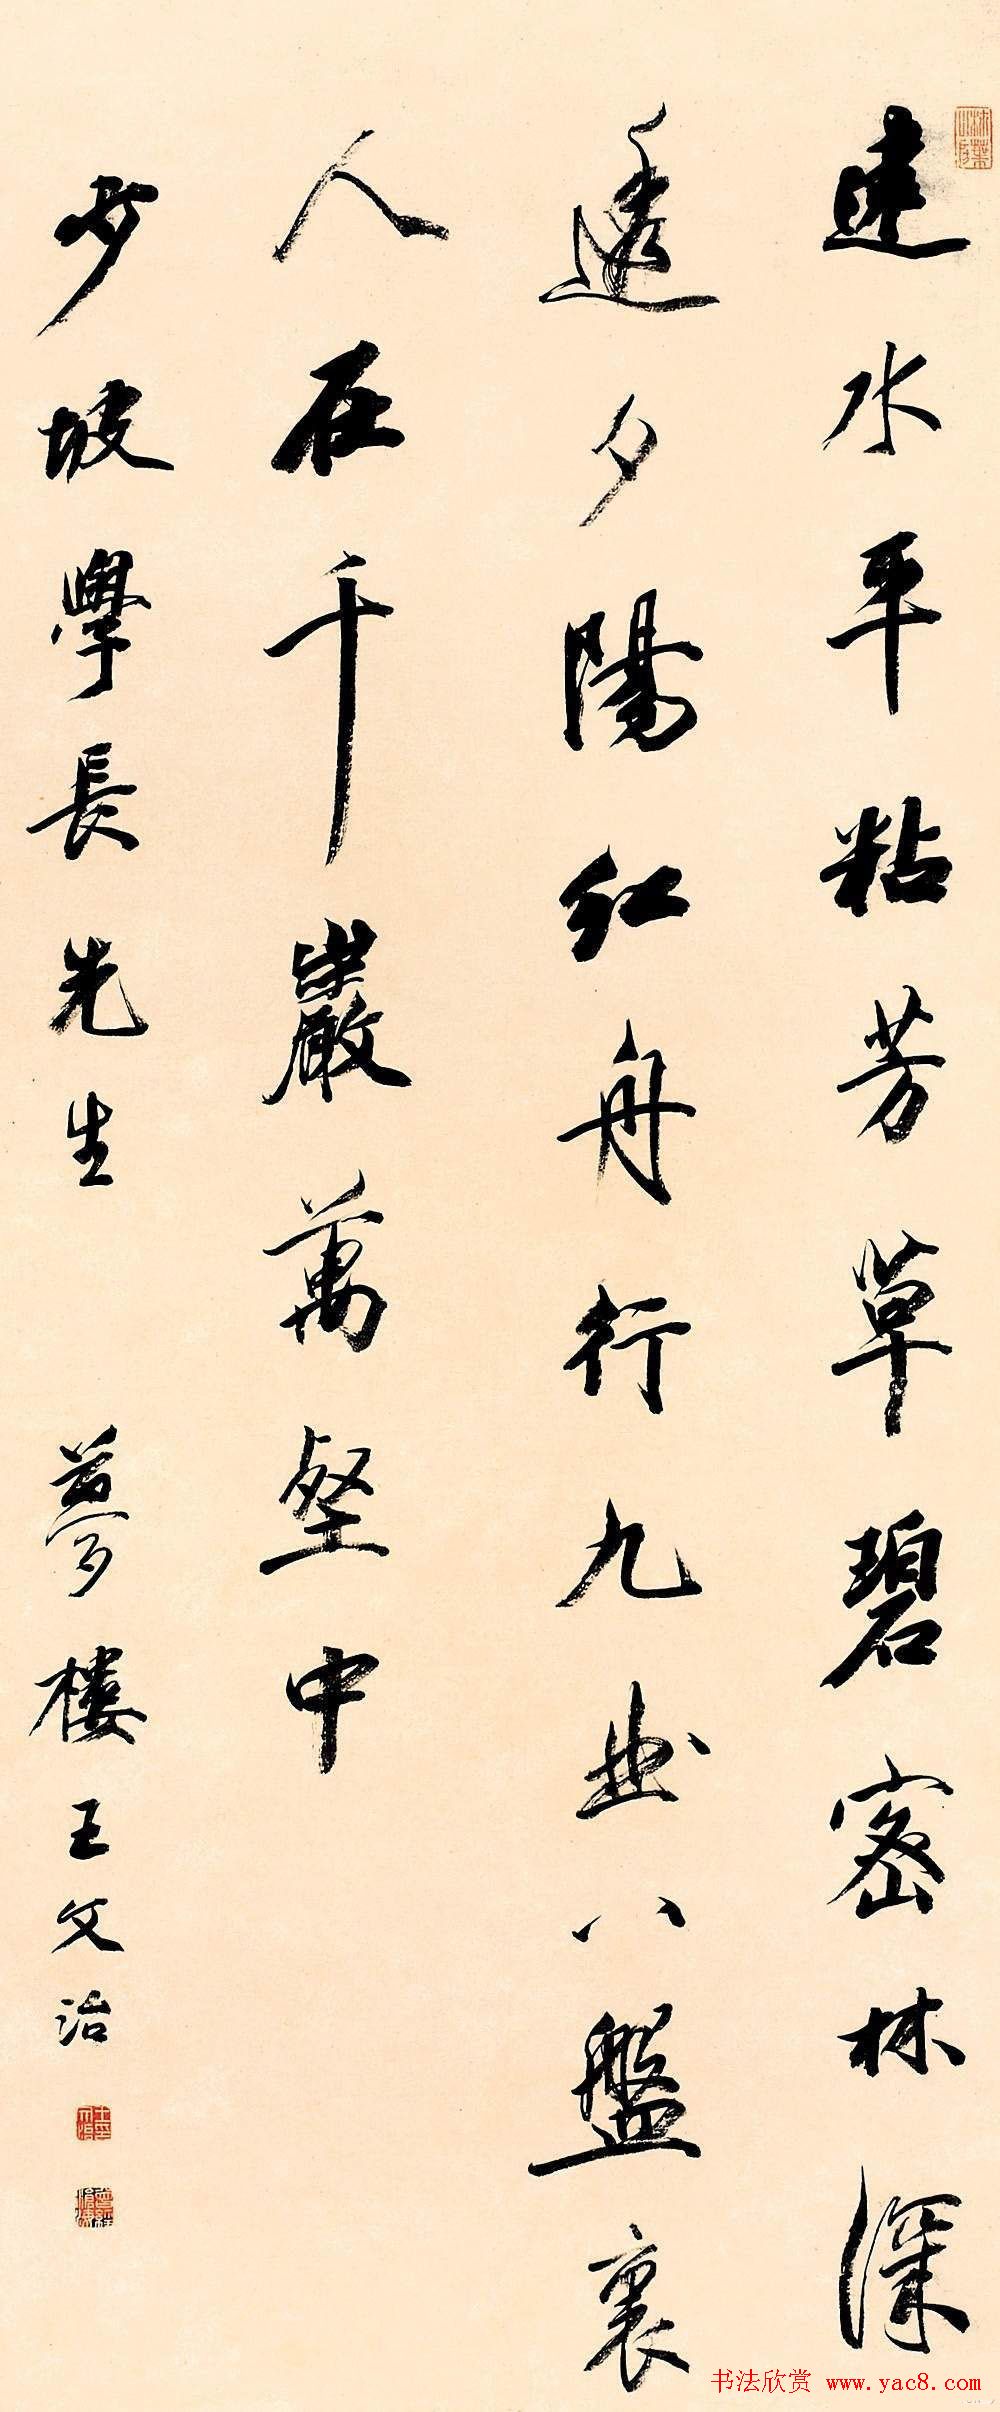 遠水平粘芳草碧密林深
透夕陽紅舟行九曲八盤裏
人在千巖萬壑中
少坡學長先生 夢樓王文治
书法欣赏 www.yac8.com